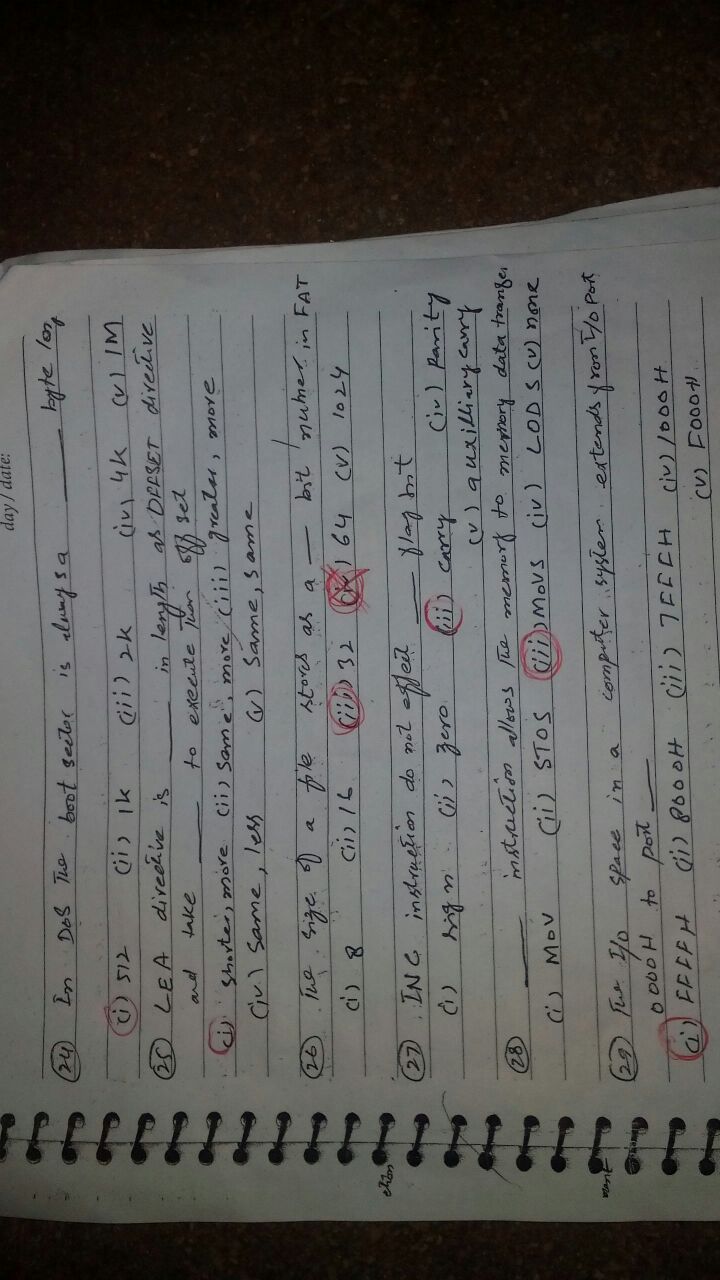 day/date:
(24) In DOS The boot sector is always a ____ byte long
(i) 512 (ii) 1k (iii) 2k (iv) 4k (v) 1M
(25) LEA directive is ____ in length as OFFSET directive
and take ____ to execute than offset
(i) shorter, more (ii) same, more (iii) greater, more
(iv) same, less (v) same, same
(26) The size of a file stors as a __ bit numer in FAT
(i) 8 (ii) 16 (iii) 32 (iv) 64 (v) 1024
(27) INC instruction do not effect ____ flag bit
(i) sign (ii) zero (iii) carry (iv) Parity
(v) auxilliary carry
(28) ____ instruction allows The memory to memory data transfer
(i) MOV (ii) STOS (iii) MOVS (iv) LODS (v) none
(29) The I/O space in a computer system extends from I/O Port
0000H to port ____
(i) FFFFH (ii) 8000H (iii) 7FFFH (iv) 1000H
(v) F000H